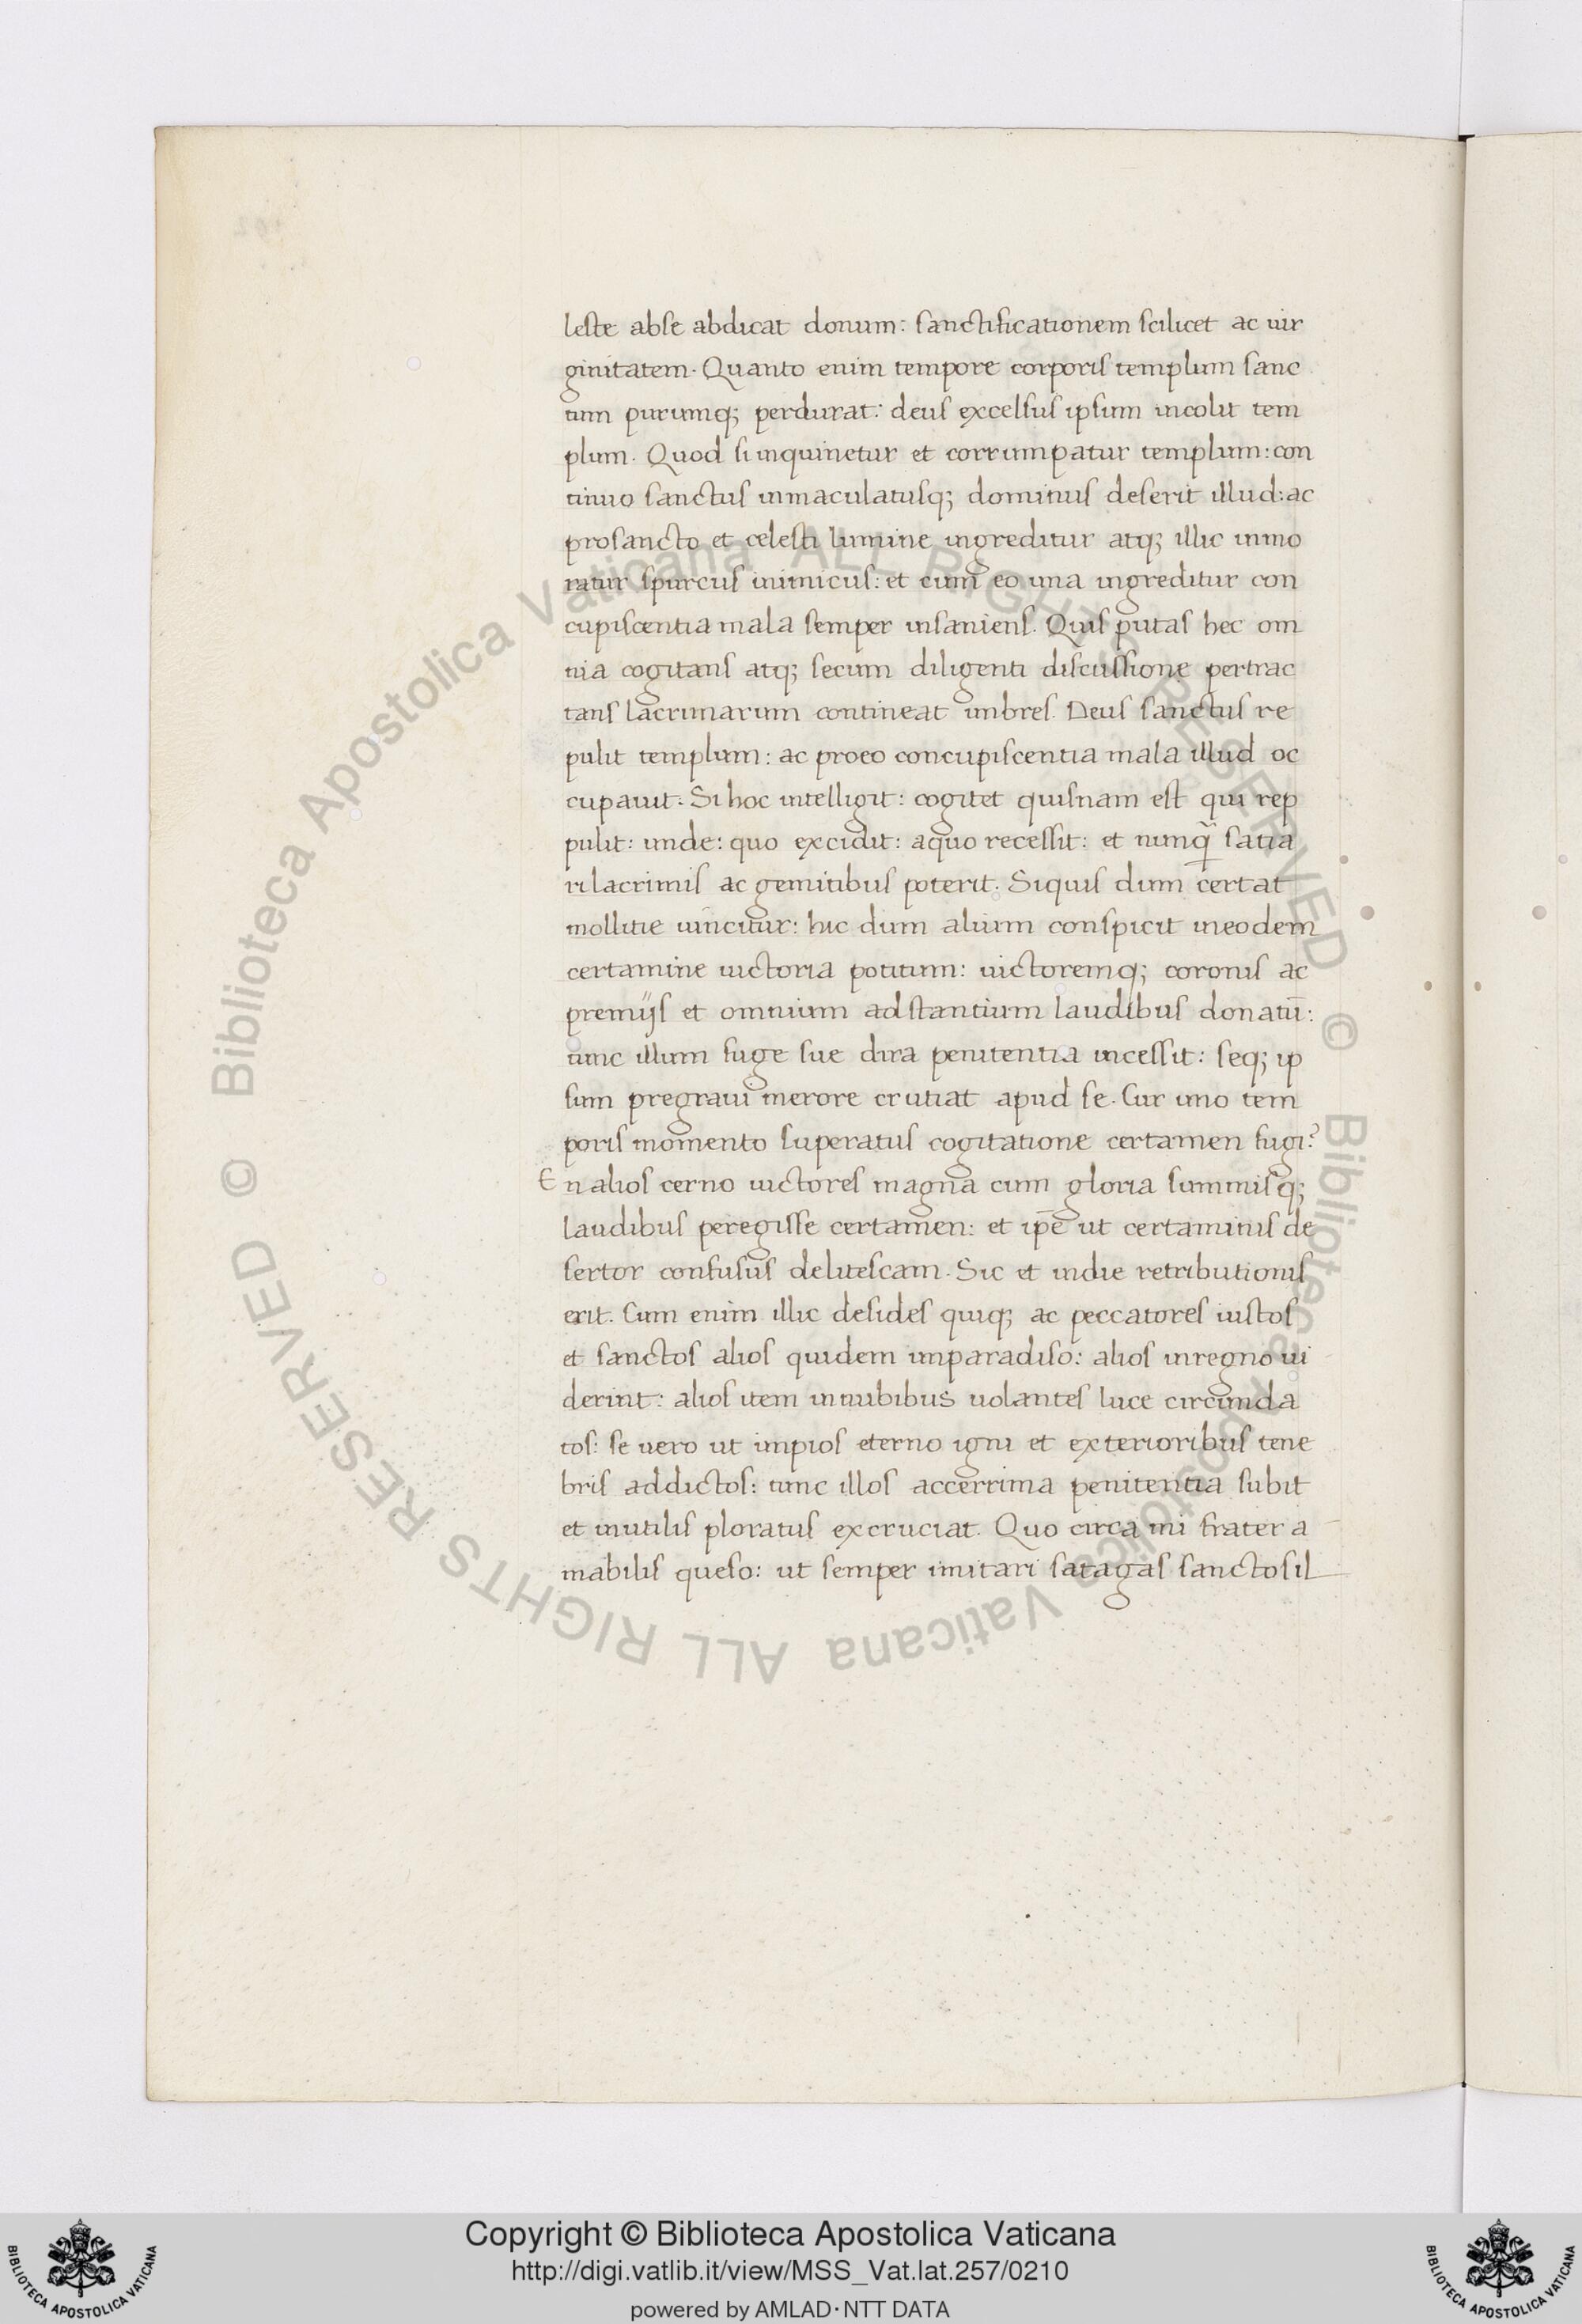 leste abse abdicat donum: sanctificationem scilicet ac uir
ginitatem. Quanto enim tempore corporis templum sanc
tum purumq; perdurat: deus excelsus ipsum incolit tem
plum. Quod si inquinetur et corrumpatur templum: con
tinuo sanctus inmaculatusq; dominus deserit illud: ac
prosancto et celesti lumine ingreditur atq; illic inmo
ratur spurcus inimicus: et cum eo una ingreditur con
cupiscentia mala semper insaniens. Quis putas hec om
nia cogitans atq; secum diligenti discussione pertrac
tans lacrimarum contineat imbres. Deus sanctus re
pulit templum: ac proeo concupiscentia mala illud oc
cupauit. Si hoc intelligit: cogitet quisnam est qui rep
pulit: unde: quo excidit: aquo recessit: et nunq̃ satia
ri lacrimis ac gemitibus poterit. Siquis dum certat
mollitie uincitur: hic dum alium conspicit ineodem
certamine uictoria potitum: uictoremq; coronis ac
premijs et omnium adstantium laudibus donatū:
tunc illum fuge sue dira penitentia incessit: seq; ip
sum pregraui merore crutiat apud se. Cur uno tem
poris momento superatus cogitatione certamen fugi?
En alios cerno uictores magna cum gloria summisq;
laudibus peregisse certamen: et ip̄e ut certaminis de
sertor confusus delitescam. Sic et indie retributionis
erit. Cum enim illic desides quiq; ac peccatores iustos
et sanctos alios quidem imparadiso: alios inregno ui
derint: alios item innubibus uolantes luce circunda
tos: se uero ut impios eterno igni et exterioribus tene
bris addictos: tunc illos accerrima penitentia subit
et inutilis ploratus excruciat. Quo circa mi frater a
mabilis queso: ut semper imitari satagas sanctos il
© Biblioteca Apostolica Vaticana ALL RIGHTS RESERVED
© Biblioteca Apostolica Vaticana ALL RIGHTS RESERVED
Copyright © Biblioteca Apostolica Vaticana
http://digi.vatlib.it/view/MSS_Vat.lat.257/0210
powered by AMLAD·NTT DATA
BIBLIOTECA APOSTOLICA VATICANA
BIBLIOTECA APOSTOLICA VATICANA